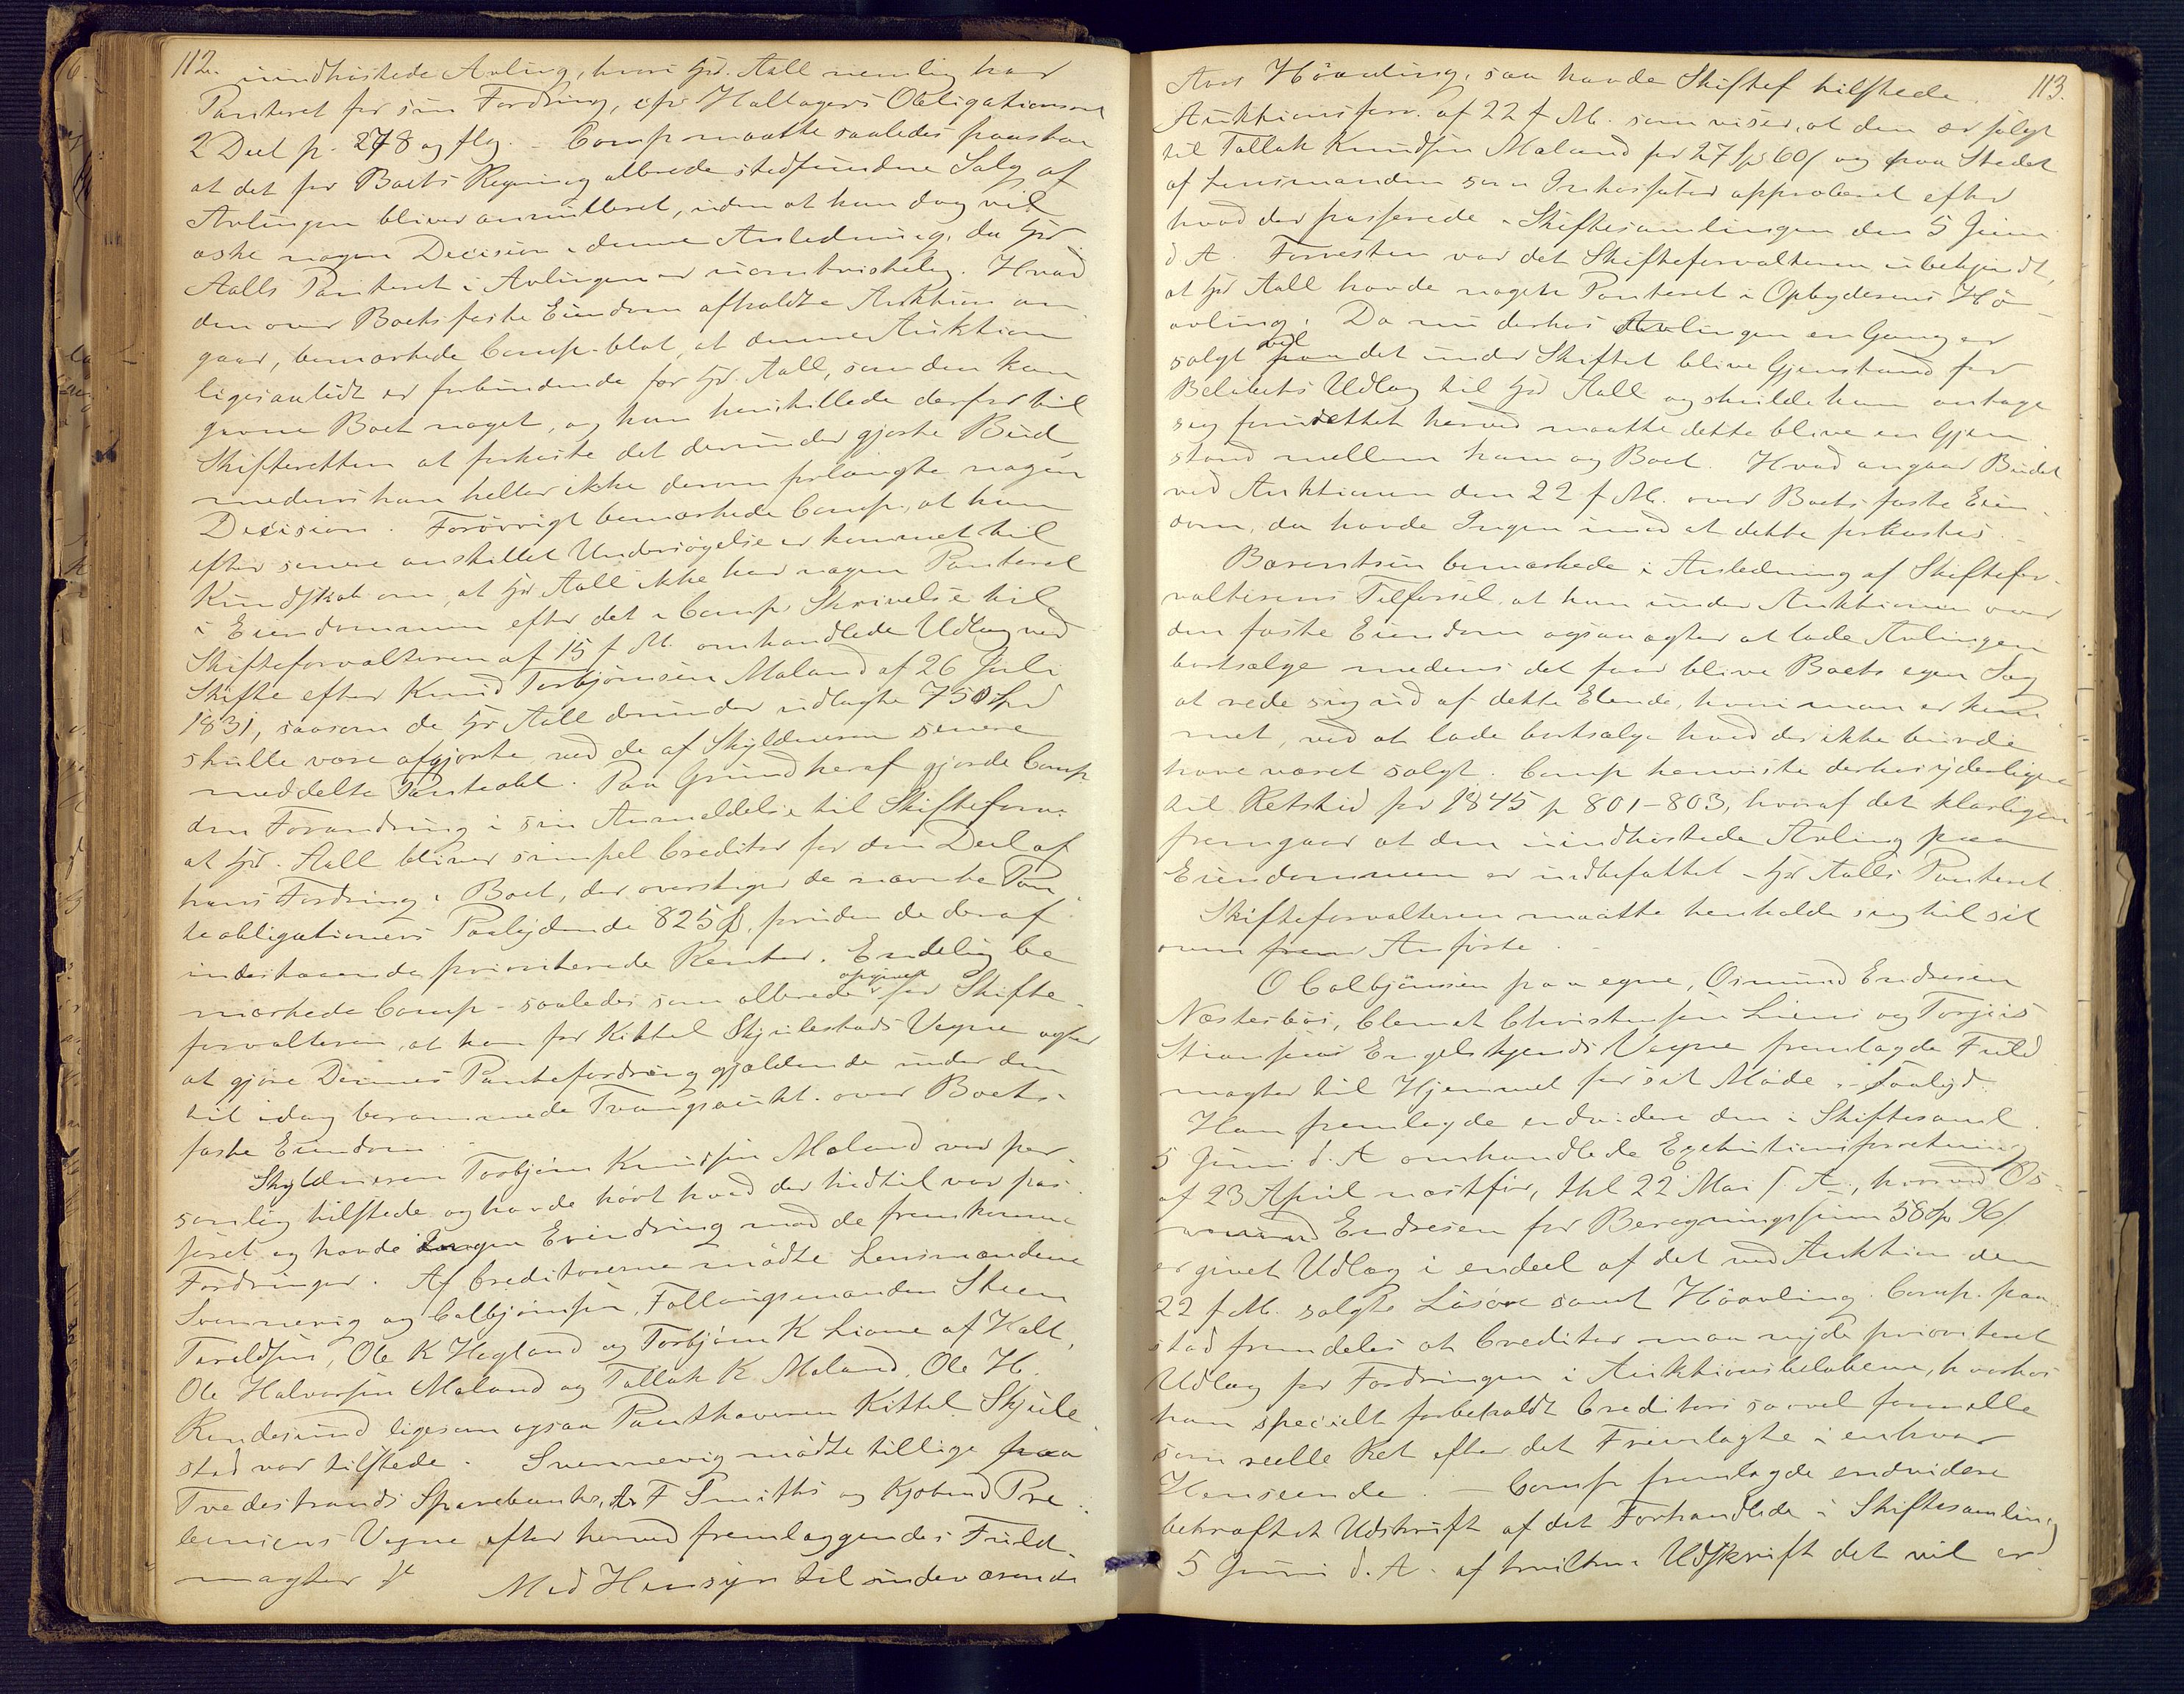 112.
uindhøstede Avling, hvori Hr. Aall nemlig har
Panteret for sin Fordring, cfr Haltagers Obligationsret
2 Deel p. 278 og flg. - Comp maatte saaledes paastaa
at det for Boets Regning allerede stedfundne Salg af
Avlingen bliver annulleret, uden at han dog vil
æske nogen Decision i denne Anledning, da Hr
Aalls Panteret i Avlingen er uomtvistelig. Hvad
den over Boets faste Eiendom afholdte Auktion an
gaar, bemærkede Comp. blot, at denne Auktion
ligesaalidt er forbindende for Hr. Aall, som den kan
gavne Boet noget, og han henstillede derfor til
Skifteretten at forkaste det derunder gjorte Bud,
medens han heller ikke derom forlangte nogen
Decision. Forøvrigt bemærkede Comp., at han
efter senere anstillet Undersøgelse er kommet til
Kundskab om, at Hr Aall ikke har nogen Panteret
i Eiendommen efter det i Comp. Skrivelse til
Skifteforvalteren af 15 f. M. omhandlede Udlæg ved
Skifte efter Knud Torbjørnsen Moland af 26 Juli
1831, saasom de Hr Aall derunder udlagte 750 Spd
skulle være afgjorte ved de af Skyldneren senere
meddelte Panteobl. Paa Grund heraf gjorde Comp
den Forandring i sin Anmeldelse til Skifteforv.
at Hr. Aall bliver simpel Creditor for den Deel af
hans Fordring i Boet, der overstiger de nævnte Pan
teobligationers Paalydende 825 Spd, foruden de deraf
indestaaende prioriterede Renter. Endelig be
mærkede Comp - saaledes som allerede opgivet for Skifte-
forvalteren, at han for Kittel Skjulestads Vegne agter
at gjøre Dennes Pantefordring gjældende under den
til idag berammede Tvangsaukt. over Boets
faste Eiendom
Skyldneren Torbjørn Knudsen Moland var per
sonlig tilstede og havde hørt hvad der hidtil var pas
seret og havde Ingen Erindring mod de fremkomne
Fordringer. Af Creditorerne mødte Lensmændene
Svennevig og Calbjørnsen, Follaugsmanden Steen
Tareldsen, Ole K Hegland og Torbjørn K Liane af Holt,
Ole Halvorsen Moland og Tallak K. Moland, Ole H.
Rendesund ligesom ogsaa Panthaveren Kittel Skjule
stad var tilstede. Svennevig mødte tillige paa
Tvedestrands Sparebanks, F Smiths og Kjøbmd Pre
bensens Vegne efter herved fremlæggendes Fuld-
magter
Med Hensyn til undeværende
113.
Aars Høavling, saa havde Skiftef tilstede
Auktionsforr. af 22 f. M. som viser, at den er solgt
til Tallak Knudsen Moland for 27 Spd 60 s og paa Stedet
af Lensmanden som Inkassator approberet efter
hvad der passerede i Skiftesamlingen den 5 Juni
d. A. Forresten var det Skifteforvalteren ubekjendt,
at Hr Aall havde nogen Panteret i Opbyderens Hø-
avling. Da nu derhos Avlingen en Gang er
solgt vil det under Skiftet blive Gjenstand for
Beløbets Udlæg til Hr Aall og skulde han antage
sig forurettet herved maatte dette blive en Gjen
stand mellem ham og Boet. Hvad angaar Budet
ved Auktionen den 22 f. M. over Boets faste Eien-
dom, da havde Ingen imod at dette forkastes. -
Børentsen bemærkede i Anledning af Skiftefor-
valterens Tilførsel, at han under Auktionen over
den faste Eiendom ogsaa agter at lade Avlingen
bortsælge medens det faar blive Boets egen Sag
at rede sig ud af dette Elende, hvori man er kom
met, ved at lade bortsælge hvad der ikke burde
have været solgt. Comp henviste derhos yderligere
til Retstid for 1845 p 801-803, hvoraf det klarligen
fremgaar at den uindhøstede Avling paa
Eiendommen er indbefattet i Hr Aalls Panteret.
Skifteforvalteren maatte henholde sig til sit
oven Anførte. -
O Calbjørnsen paa egne, Osmund Endresen
Næstesbøs, Clemet Christensen Liens og Torgius
Stiansens Engelskjends Vegne fremlagde Fuld
magter til Hjemmel for sit Møde, - saalyd.
Han fremlagde endvidere den i Skiftesaml.
5 Juni d. A omhandlede Exekutionsforretning
af 23 April næstfør, thl 22 Mai s. A., hvorved Os-
mund Endresen for Beregningssum 58 Spd 96 s
er givet Udlæg i endeel af det ved Auktion den
22 f. M. solgte Løsøre samt Høavling. Comp. paa
stod fremdeles at Creditor maa nyde prioriteret
Udlæg for Fordringen i Auktionsbeløbene, hvorhos
han specielt forbeholdt Creditors saavel formelle
som reelle Ret efter det Fremlagte i enhver
Henseende. - Comp fremlagde endvidere
bekræftet Udskrift af det Forhandlede i Skiftesamling
5 Juni d. A. af hvilken Udskrift det vil er